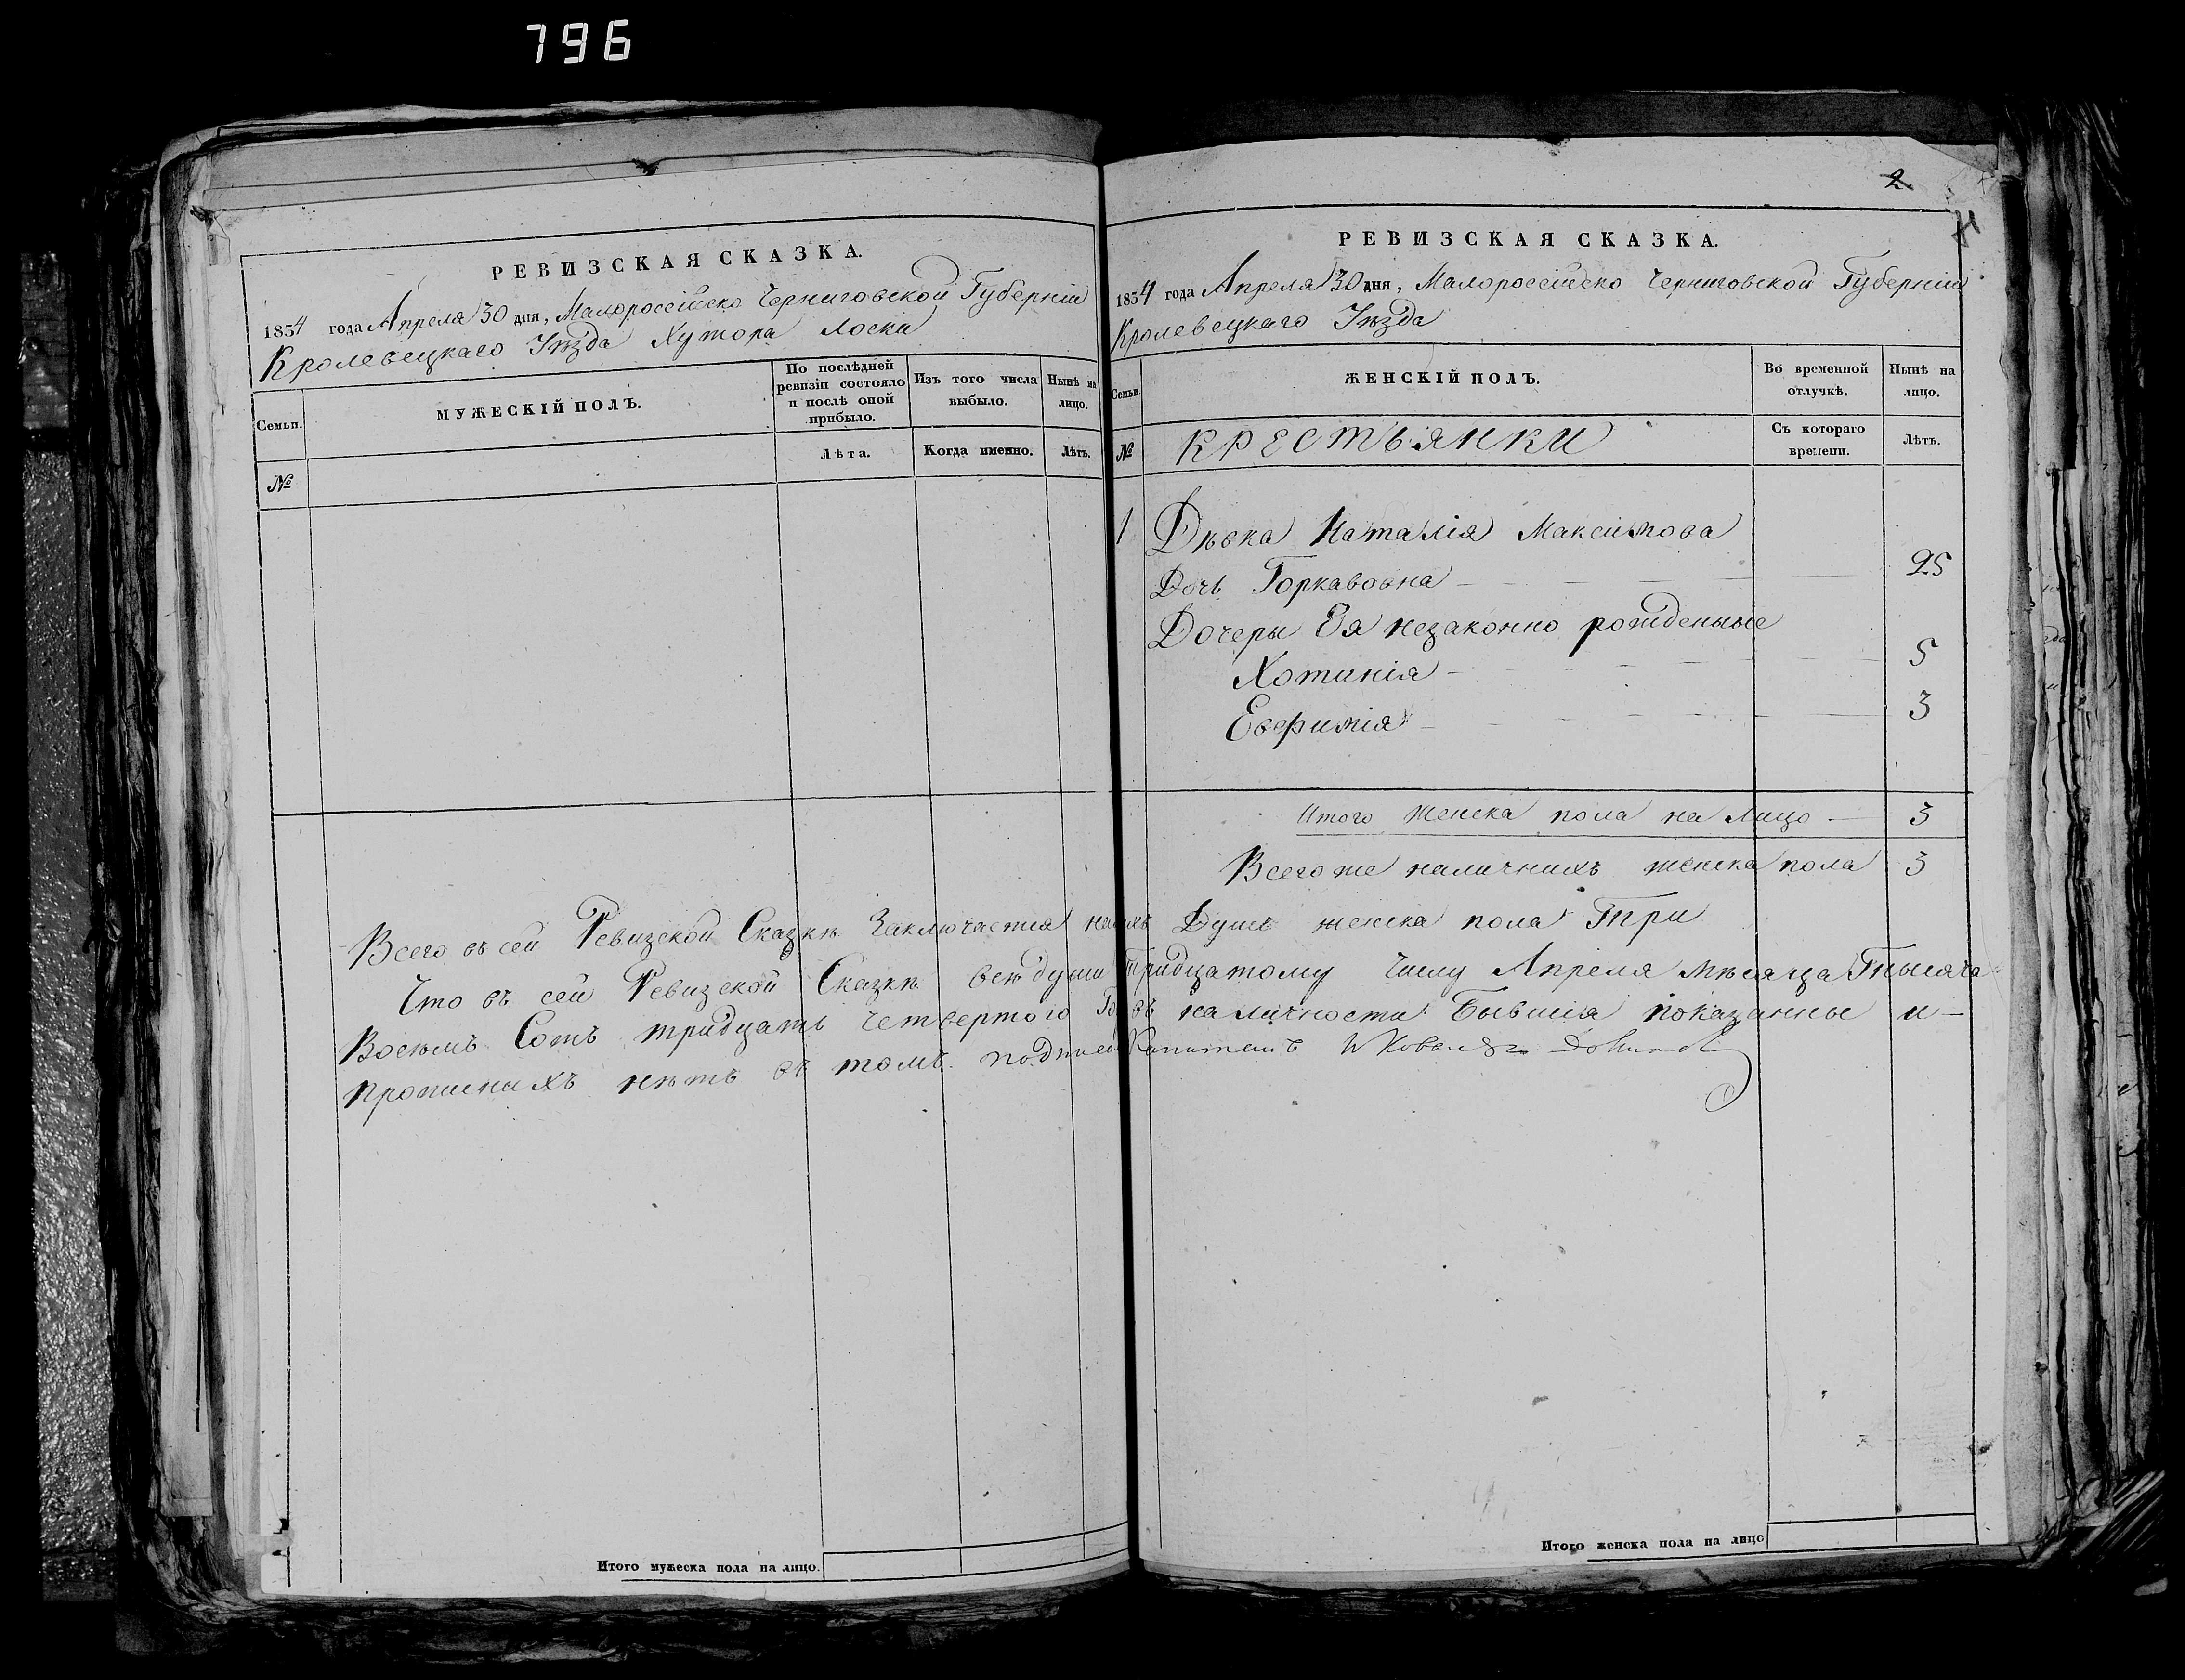 796
РЕВИЗСКАЯ СКАЗКА.
1834 года Апреля 30 дня, Малороссійско Черниговской Губерніи
Кролевецкаго Уѣзда Хутора Лоски
Семьи.
МУЖЕСКІЙ ПОЛЪ.
По послѣдней ревизіи состояло и послѣ оной прибыло.
Изъ того числа выбыло.
Нынѣ на лицо.
№
Лѣта.
Когда именно.
Лѣтъ.
2
РЕВИЗСКАЯ СКАЗКА.
1834 года Апреля 30 дня, Малороссійско Черниговской Губерніи
Кролевецкаго Уѣзда
Семьи.
ЖЕНСКІЙ ПОЛЪ.
Во временной отлучкѣ.
Нынѣ на лицо.
№
КРЕСТЬЯНКИ
Съ котораго времени.
Лѣтъ.
1 Дѣвка Наталія Максимова
Дочь Горкавовна 25
Дочеры Ея незаконно рожденные
Хотинія 5
Евфимія 3
Итого женска пола на лицо 3
Всего же наличнихъ женска пола 3
Всего въ сей Ревизской Сказкѣ Заключается Душъ женска пола Три
Что въ сей Ревизской Сказкѣ всѣ души тридцатому Числу Апреля мѣсяца Тысяча
Восемь Сотъ тридцать четвертого въ наличности Бывшія показанные и
прописнихъ нѣтъ въ томъ
Итого мужеска пола на лицо.
Итого женска пола на лицо